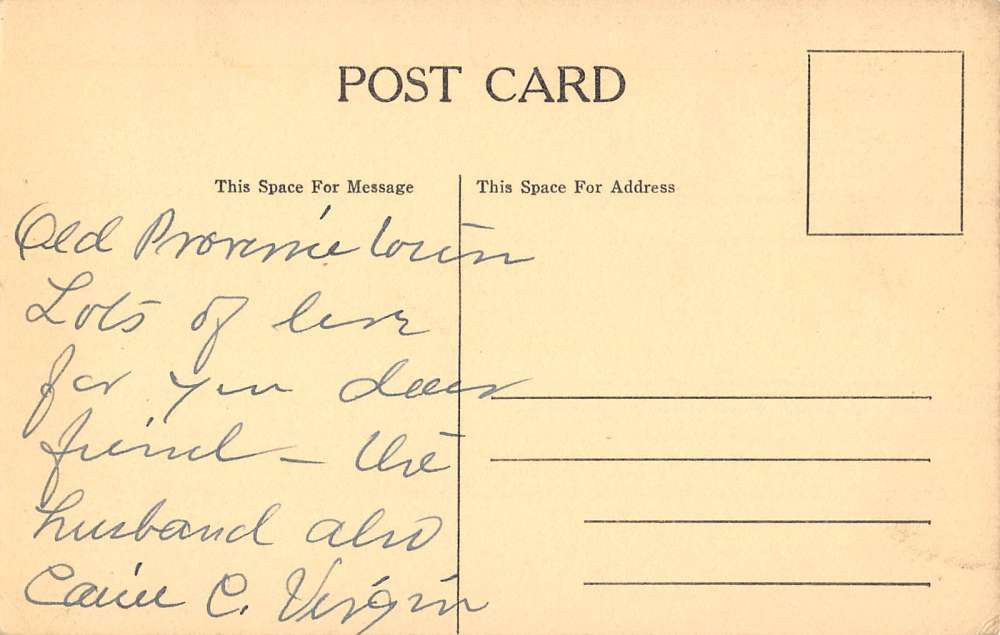 POST CARD
This Space For Message
This Space For Address
Old Province town
Lots of love
for you dear
friend – the
husband also
C. Virgin